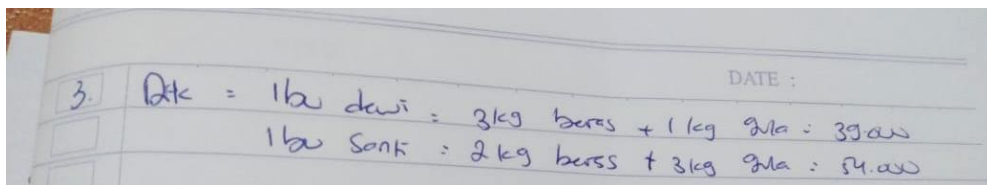 DATE :
3. Dik = Ibu dewi : 3kg beras + 1 kg gula : 39.000
Ibu Santi : 2 kg beras + 3 kg gula : 54.000